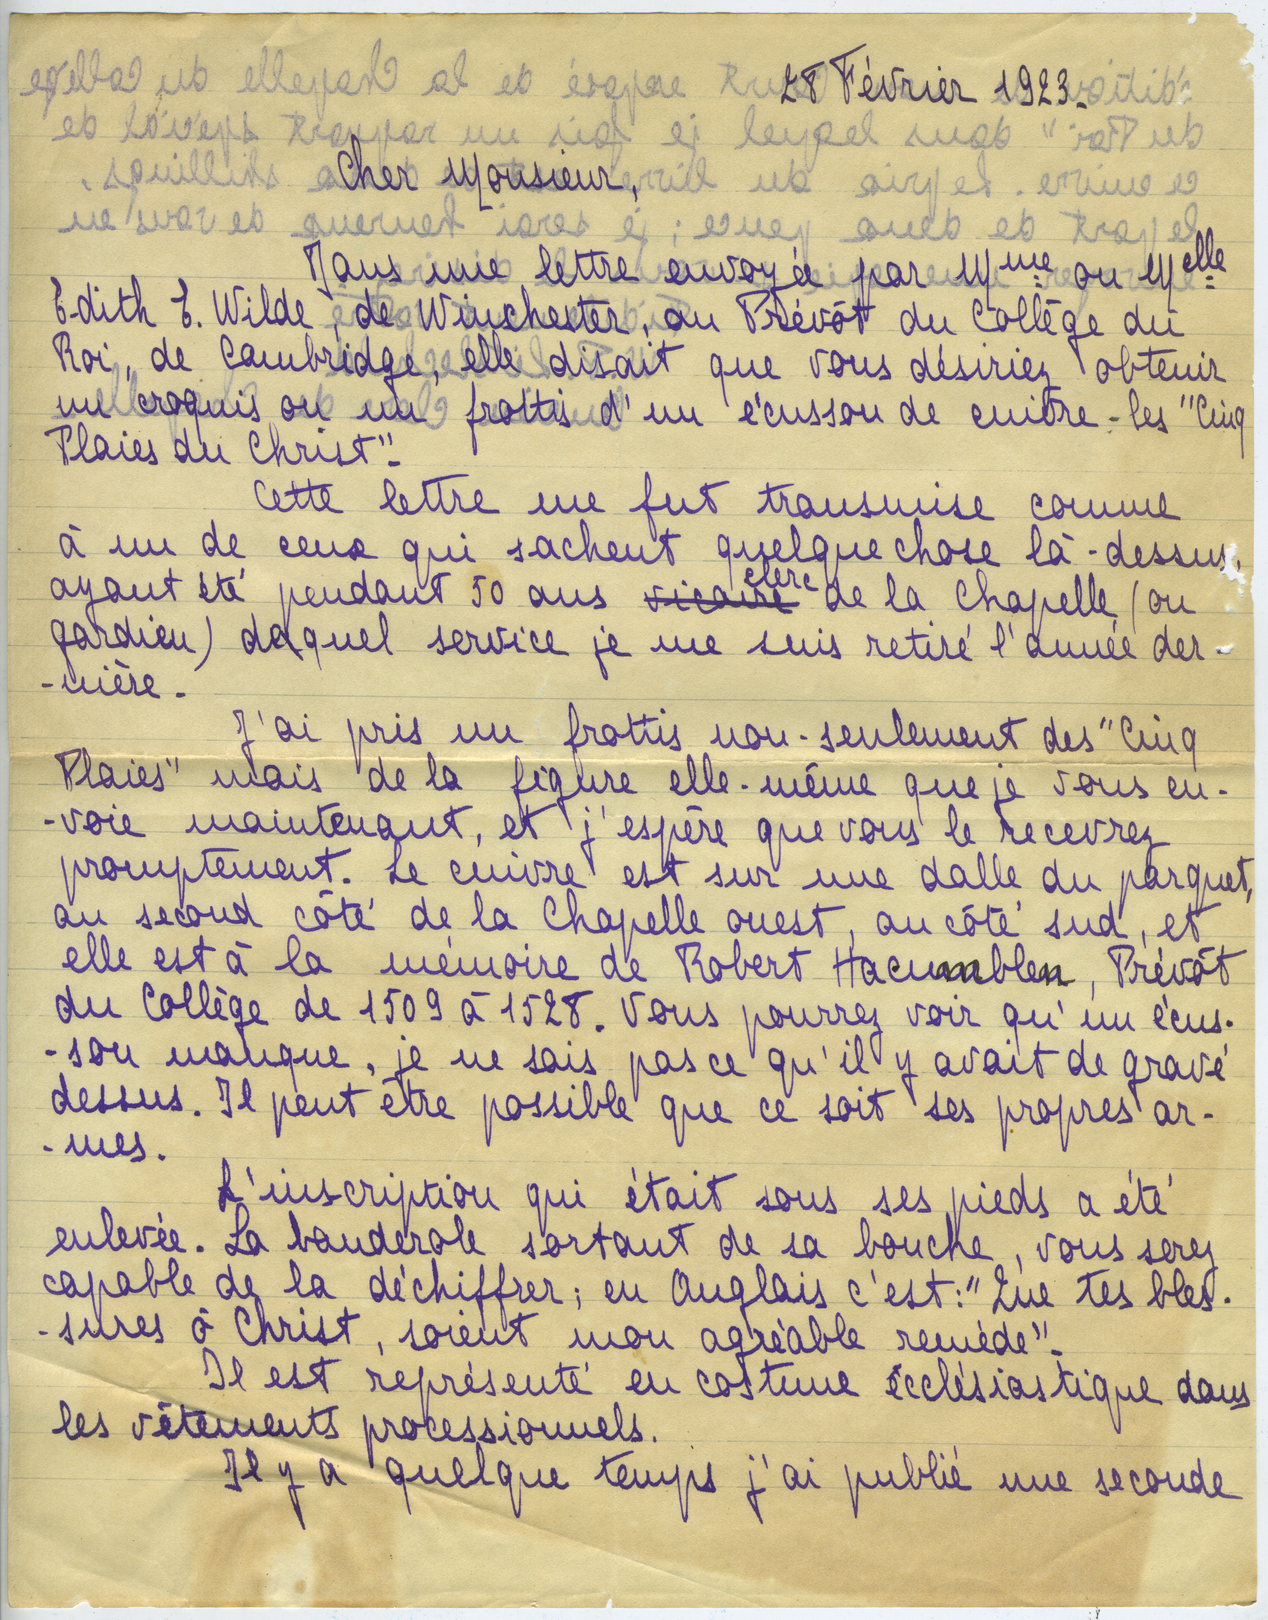 28 Février 1923.
Cher Monsieur,
Dans une lettre envoyée par Mme ou Melle
Edith E. Wilde, de Winchester, au Prévôt du Collège du
Roi, de Cambridge, elle disait que vous désiriez obtenir
un croquis ou un frottis d'un écusson de cuivre - les "Cinq
Plaies du Christ".
Cette lettre me fut transmise comme
à un de ceux qui sachent quelque chose là-dessus,
ayant été pendant 50 ans vicaire clerc de la Chapelle (ou
gardien) duquel service je me suis retiré l'année der-
-nière.
J'ai pris un frottis non-seulement des "Cinq
Plaies" mais de la figure elle-même que je vous en-
-voie maintenant, et j'espère que vous le recevrez
promptement. Le cuivre est sur une dalle du parquet,
au second côté de la Chapelle ouest, au côté sud, et
elle est à la mémoire de Robert Hacumblen, Prévôt
du Collège de 1509 à 1528. Vous pourrez voir qu'un écus-
-son manque, je ne sais pas ce qu'il y avait de gravé
dessus. Il peut être possible que ce soit ses propres ar-
-mes.
L'inscription qui était sous ses pieds a été
enlevée. La banderole sortant de sa bouche, vous serez
capable de la déchiffrer; en Anglais c'est: "Que tes bles-
-sures ô Christ, soient mon agréable remède".
Il est représenté en costume écclésiastique dans
les vêtements processionnels.
Il y a quelque temps j'ai publié une seconde